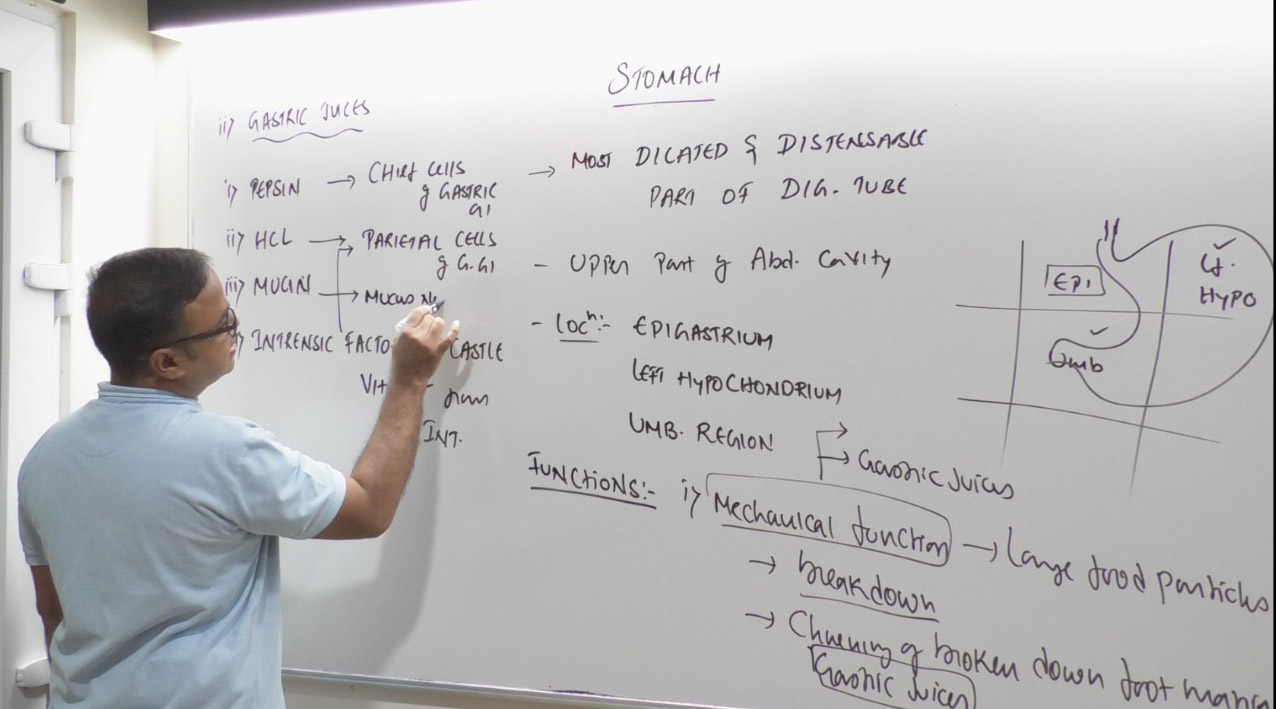 STOMACH
ii) GASTRIC JUICES
i) PEPSIN → CHIEF CELLS
of GASTRIC
Gl
ii) HCL → PARIETAL CELLS
of G.Gl
iii) MUCIN → MUCUS
INTRENSIC FACTO CASTLE
VIT
INT.
→ MOST DILATED & DISTENSABLE
PART OF DIG. TUBE
- UPPER Part of Abd. Cavity
- Locⁿ:- EPIGASTRIUM
LEFT HYPOCHONDRIUM
UMB. REGION
→ Gastric Juices
FUNCTIONS:- i) Mechanical function → Large food particles
→ breakdown
→ Churning of broken down foot
Gastric Juices
EPI
Lt.
HYPO
Umb